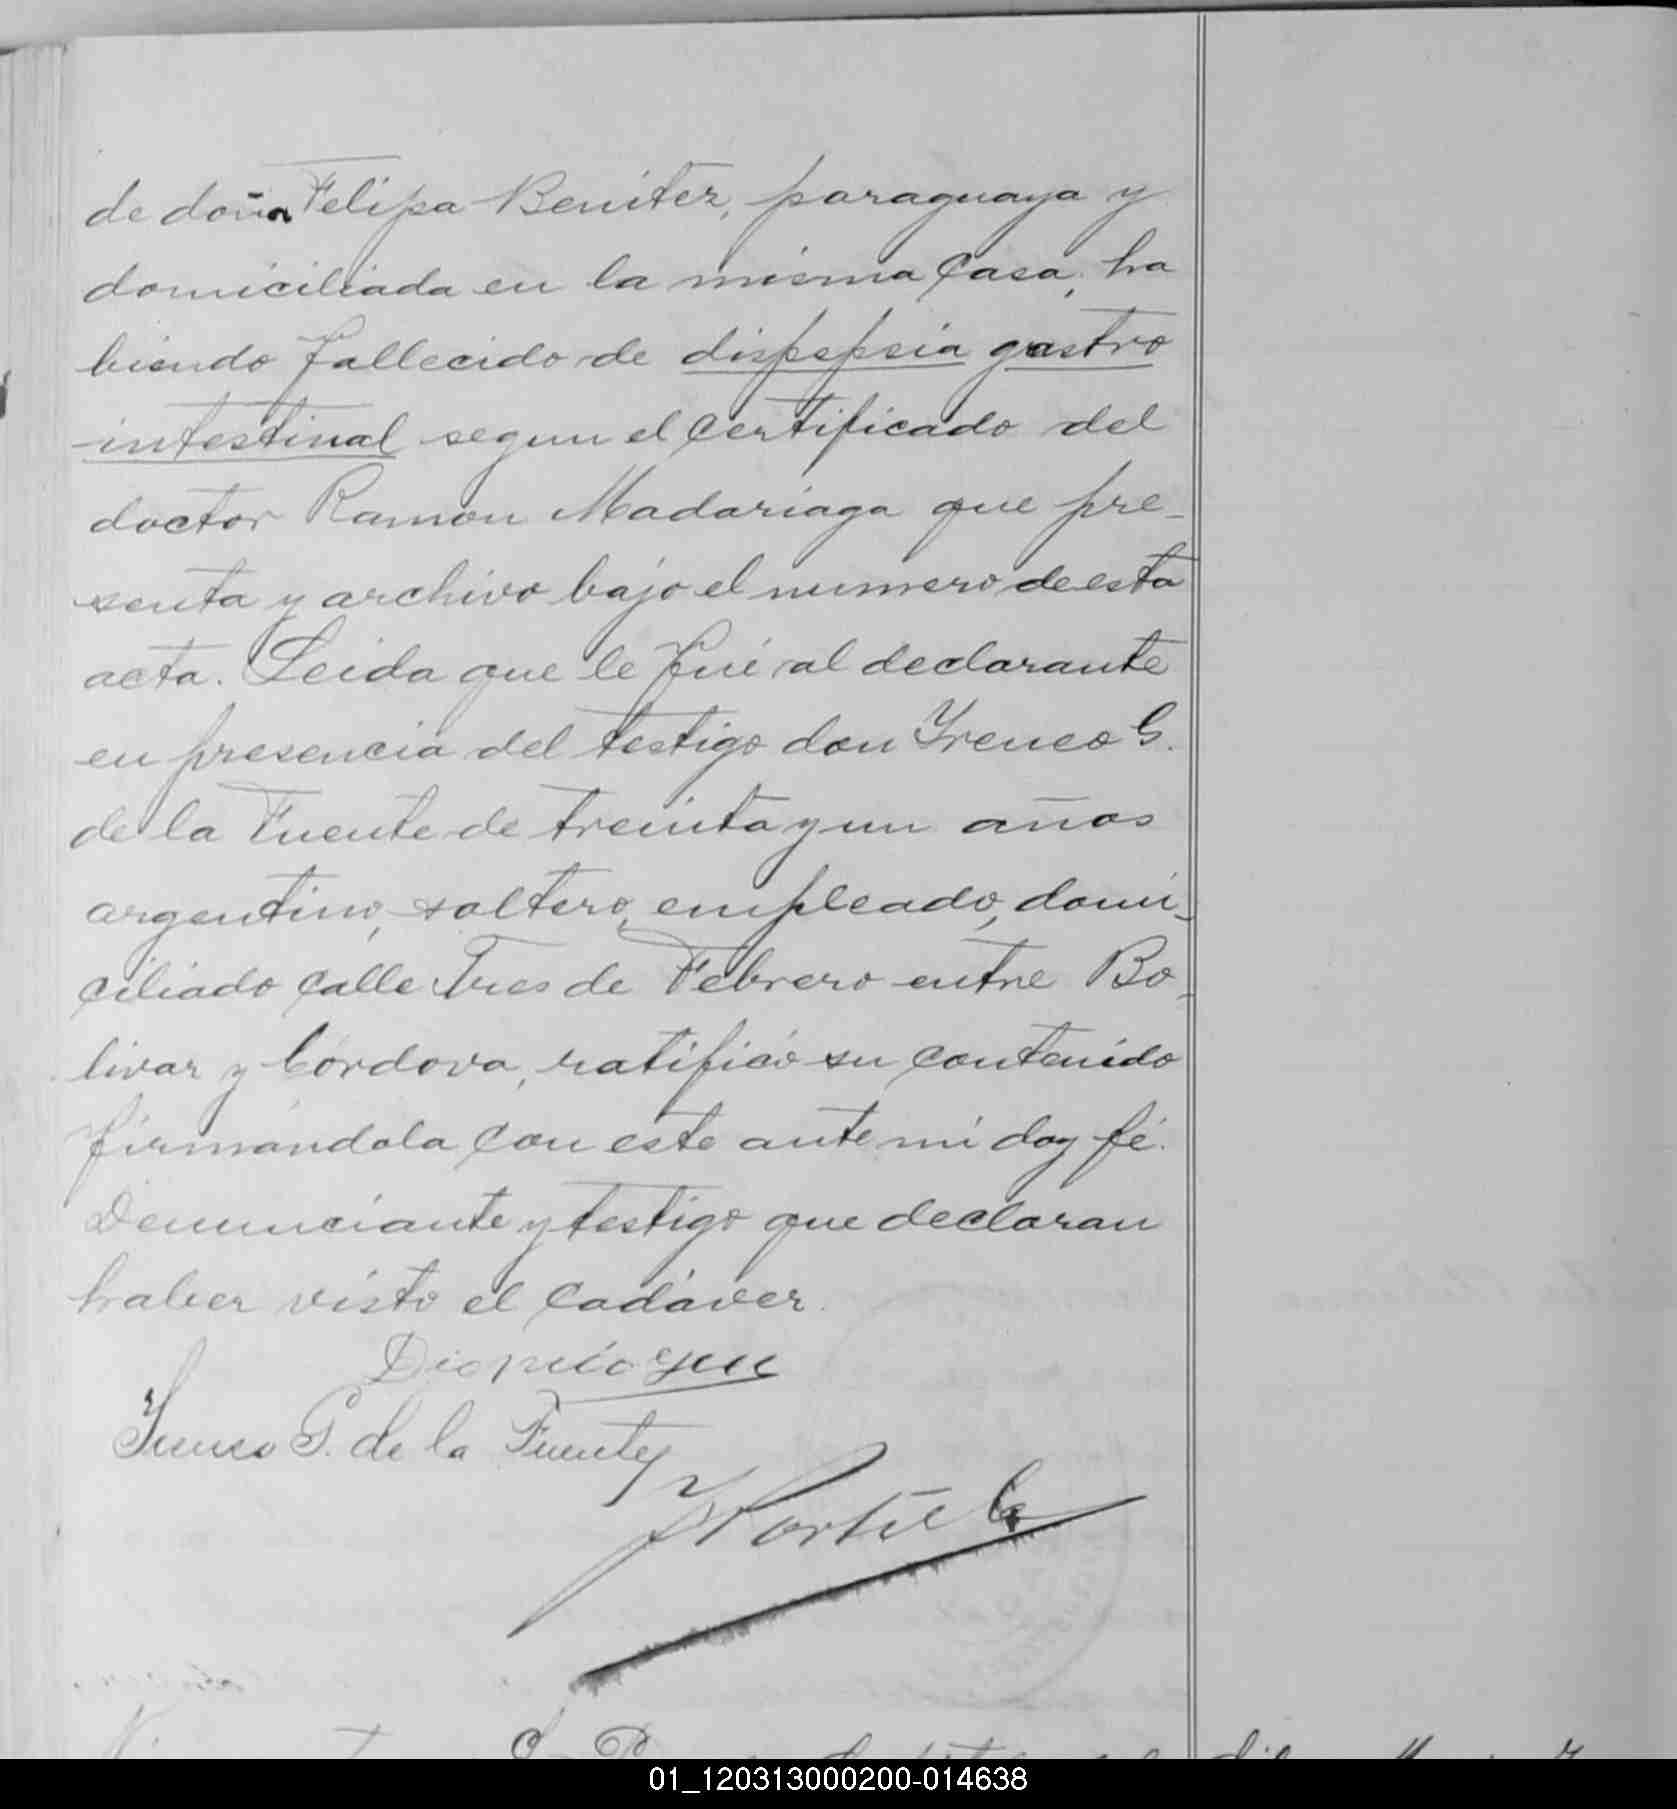 de doña Felipa Benitez, paraguaya y
domiciliada en la misma casa, ha
biendo fallecido de dispepsia gastro
intestinal segun el certificado del
doctor Ramon Madariaga que pre-
senta y archivo bajo el numero de esta
acta. Leida que le fué al declarante
en presencia del testigo don Yreneo G.
de la Fuente de treinta y un años
argentino, soltero, empleado, domi-
ciliado calle Tres de Febrero entre Bo-
livar y Córdova, ratificó su contenido
firmándola con este ante mi doy fé.
Denunciante y testigo que declaran
haber visto el cadáver.
Yreneo G. de la Fuente
01_120313000200-014638